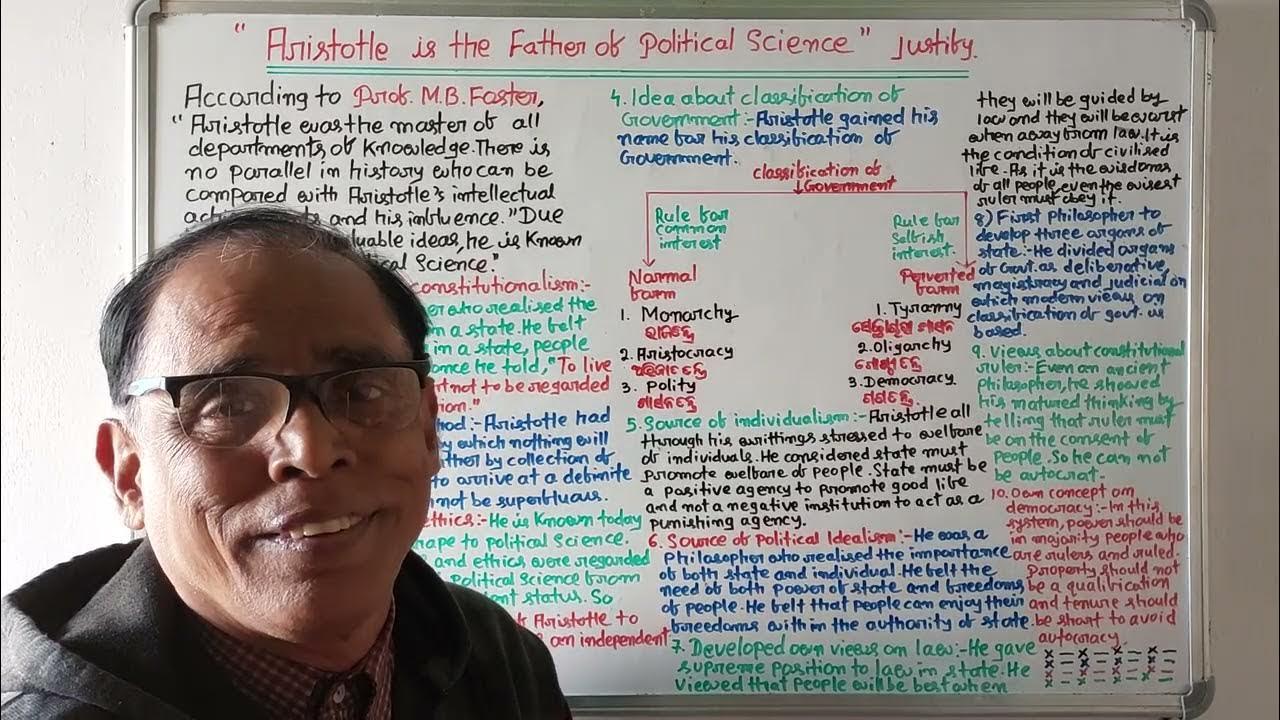 "Aristotle is the Father of Political Science" Justify.
According to Prof. M.B. Foster,
"Aristotle was the master of all
departments of Knowledge. There is
no parallel in history who can be
compared with Aristotle's intellectual
and his influence." Due
ideas, he is Known
Science."
constitutionalism:-
who realised the
a state. He felt
in a state, people
once he told, "To live
not to be regarded
:- Aristotle had
by which nothing will
by collection of
to arrive at a definite
not be superfluous.
ethics:- He is Known today
to Political Science.
and ethics were regarded
Political Science from
status. So
Aristotle to
an independent
4. Idea about classification of
Government:- Aristotle gained his
name for his classification of
Government.
classification of
Government
Rule for
common
interest
Rule for
Selfish
interest.
Normal
form
Perverted
form
1. Monarchy
ରାଜତନ୍ତ୍ର
2. Aristocracy
3. Polity
1. Tyranny
2. Oligarchy
3. Democracy
5. Source of individualism:- Aristotle all
through his writtings stressed to welfare
of individuals. He considered state must
promote welfare of people. State must be
a positive agency to promote good life
and not a negative institution to act as a
punishing agency.
6. Source of Political Idealism:- He was a
Philosopher who realised the importance
of both state and individual. He felt the
need of both power of state and freedoms
of people. He felt that people can enjoy their
freedoms within the authority of state.
7. Developed own views on law:- He gave
supreme position to law in state. He
viewed that People will be best when
they will be guided by
law and they will be worst
when away from law. It is
the condition of civilised
life. As it is the wisdoms
of all people, even the wisest
ruler must obey it.
8) First Philosopher to
develop three organs of
state:- He divided organs
of Govt. as deliberative,
magistracy and judicial on
which modern views on
classification of govt. is
based.
9. Views about constitutional
ruler:- Even an ancient
Philosopher, he showed
his matured thinking by
telling that ruler must
be on the consent of
People. So he can not
be autocrat-
10. Own concept on
democracy:- In this
system, power should be
in majority people who
are rulers and ruled.
Property should not
be a qualification
and tenure should
be short to avoid
autocracy